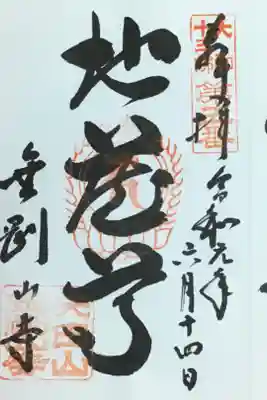 奉拝
令和元年
六月十四日
地蔵尊
金剛山寺